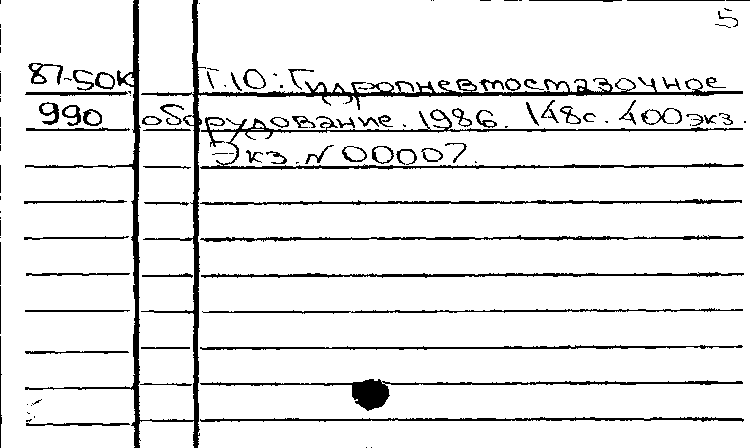 5
87-50К Т.10: Гидропневтостазочное
990 оборудование. 1986. 148с. 400экз.
Экз. № 00007.